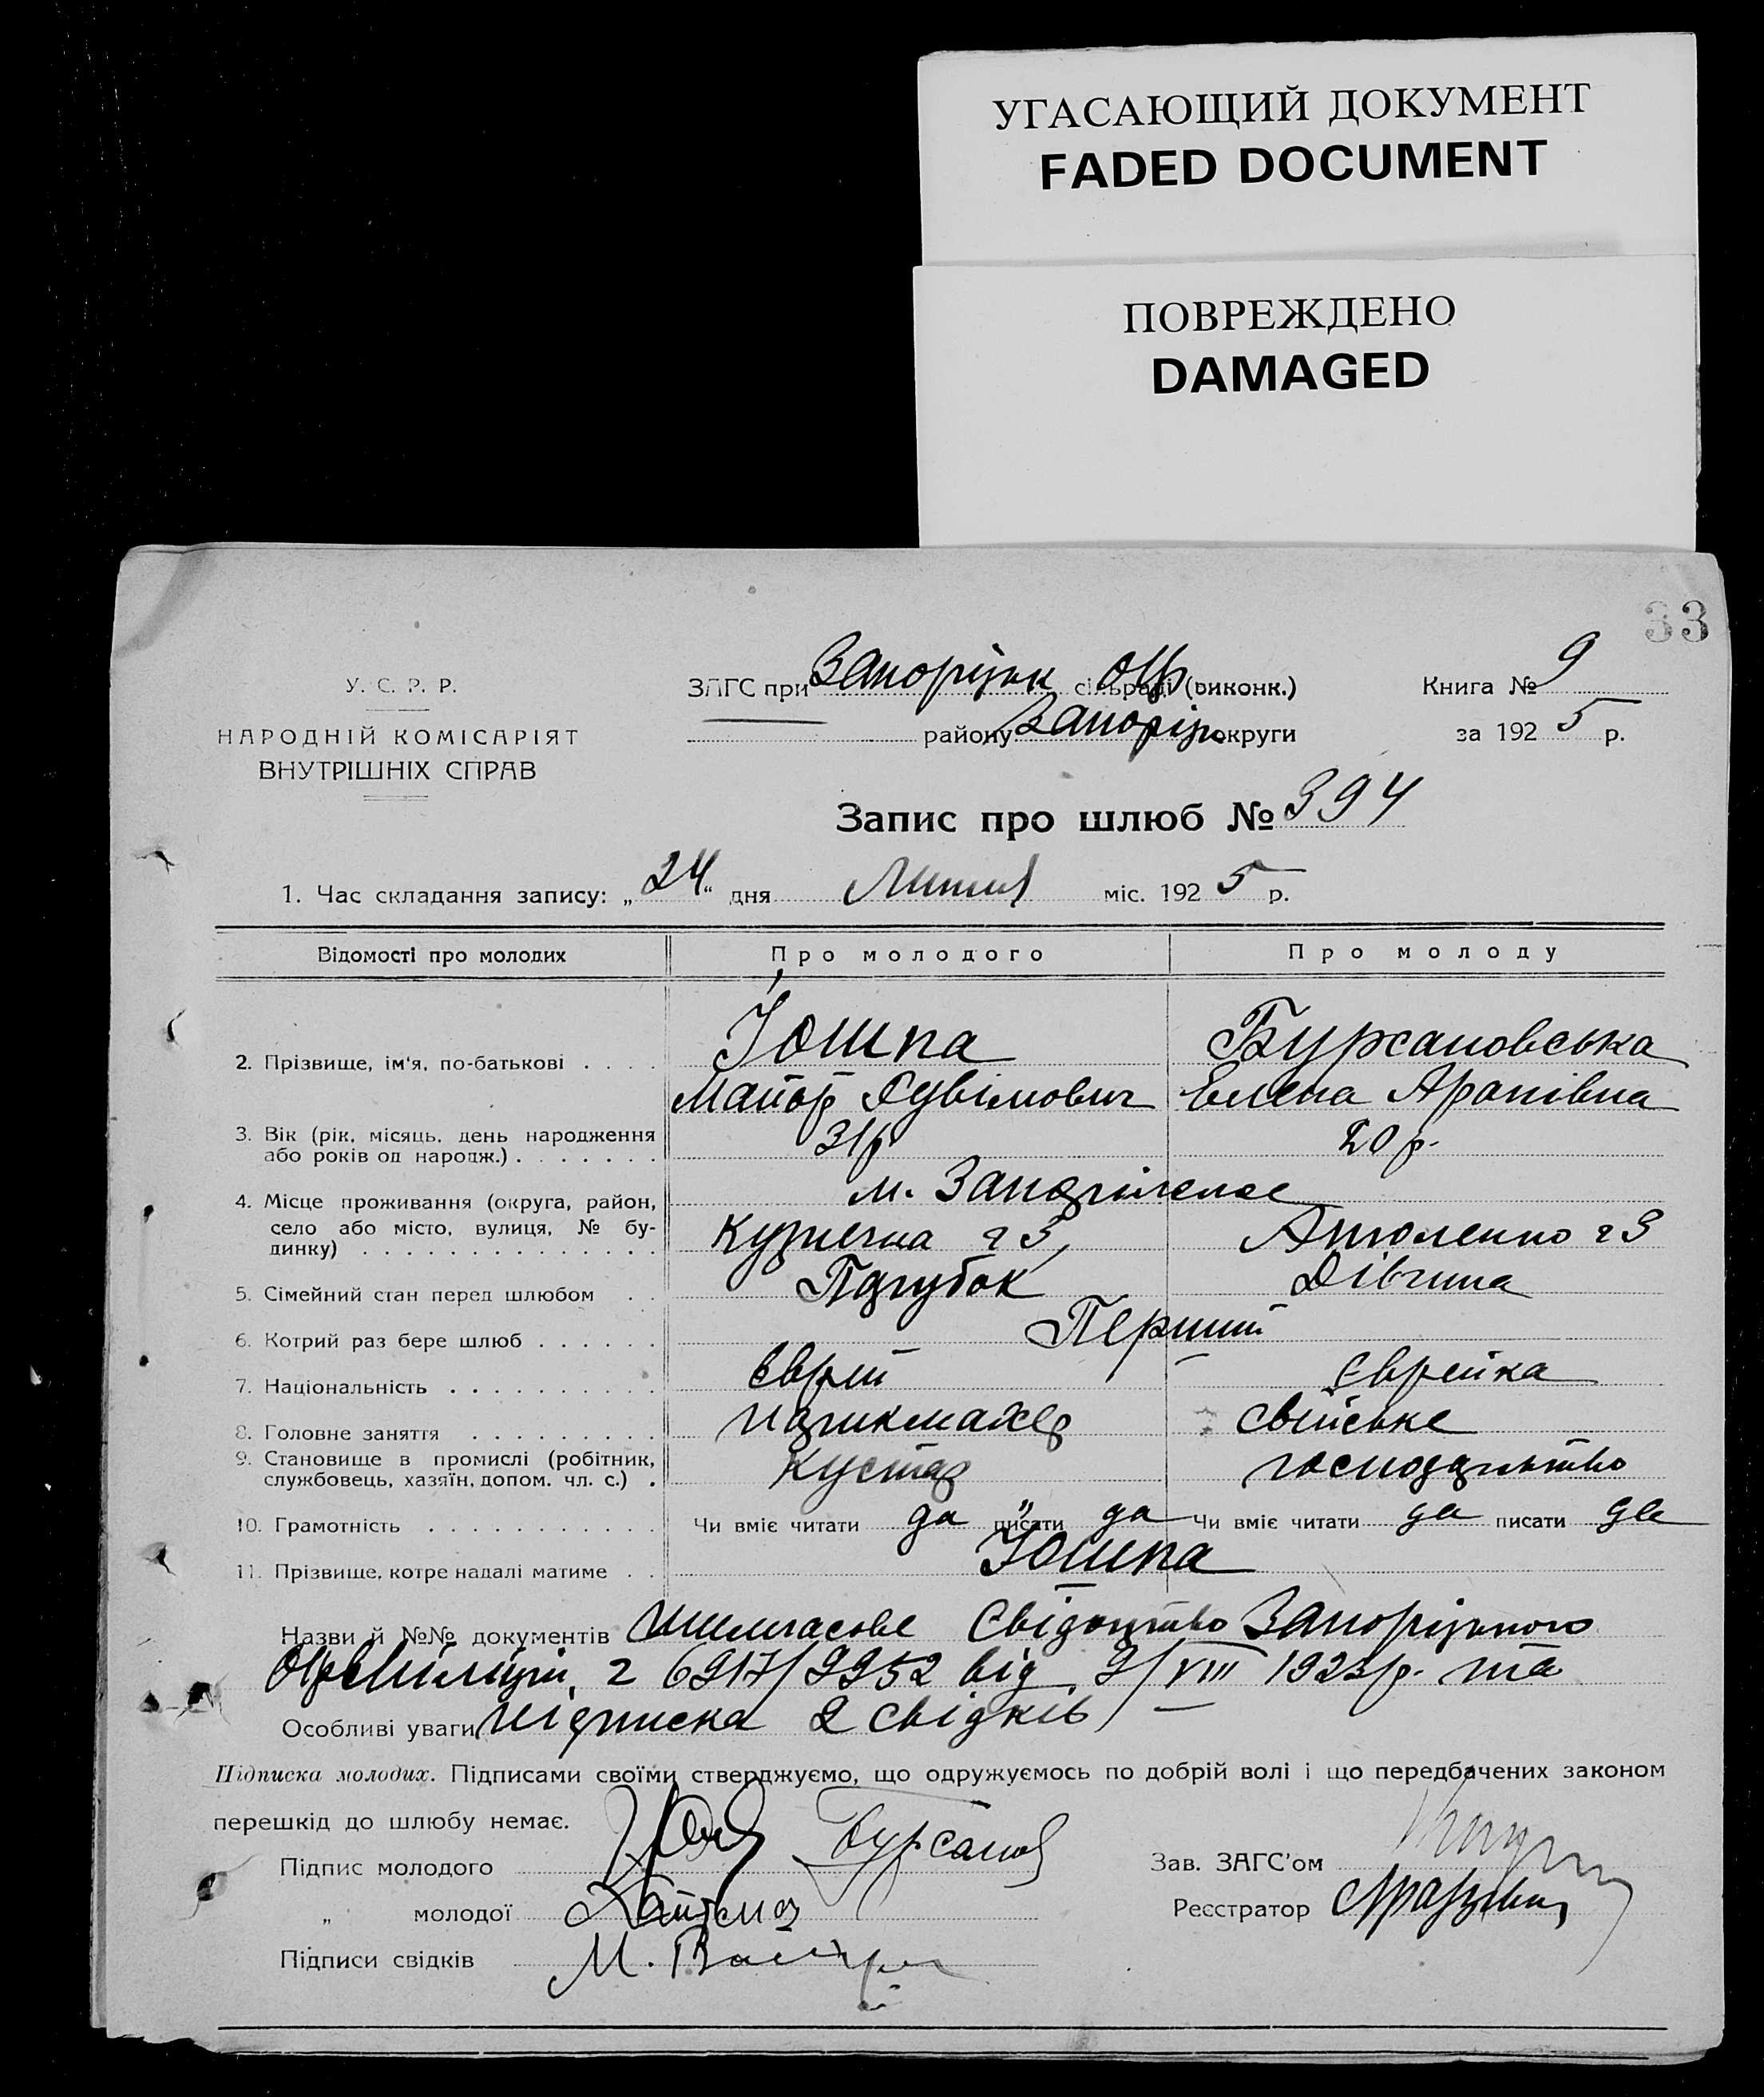 УГАСАЮЩИЙ ДОКУМЕНТ
FADED DOCUMENT
ПОВРЕЖДЕНО
DAMAGED
33
У. С. Р. Р.
НАРОДНІЙ КОМІСАРІЯТ
ВНУТРІШНІХ СПРАВ
ЗАГС при Запоріжк сільраді (виконк.)
району Запоріж округи
Книга № 9
за 1925 р.
Запис про шлюб № 394
1. Час складання запису: „24“ дня Липня міс. 1925 р.
Відомості про молодих Про молодого Про молоду
2. Прізвище, ім'я, по-батькові . . . . Йошпа Бурсановська
Майор Елена Аронівна
3. Вік (рік, місяць, день народження
або років од народж.) . . . . . . . 31 р 20 р.
4. Місце проживання (округа, район,
село або місто, вулиця, № бу-
динку) . . . . . . . . . . . . . .
м. Запоріжжа
Кузнечна 3
5. Сімейний стан перед шлюбом . . Парубок Дівчина
6. Котрий раз бере шлюб . . . . . . Перший
7. Національність . . . . . . . . . . Єврей Єврейка
8. Головне заняття . . . . . . . . . парикмахер свійське
9. Становище в промислі (робітник,
службовець, хазяїн, допом. чл. с.) . Кустар господарьство
10. Грамотність . . . . . . . . . . . Чи вміє читати да писати да Чи вміє читати да писати да
11. Прізвище, котре надалі матиме . . Йошпа
Назви й №№ документів тимчасове Свідоцтво Запоріжського
Окрміліції, 2 від /VIII р. та
Особливі уваги підписка 2 свідків
Підписка молодих. Підписами своїми стверджуємо, що одружуємось по добрій волі і що передбачених законом
перешкід до шлюбу немає.
Підпис молодого Бурсанов
„ молодої
Підписи свідків М.
Зав. ЗАГС'ом
Реєстратор